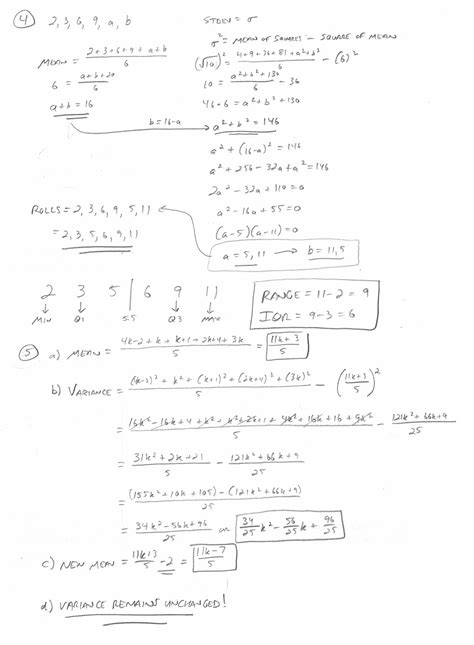 ④ 2, 3, 6, 9, a, b
STDEV = σ
σ² = MEAN OF SQUARES - SQUARE OF MEAN
MEAN = (2+3+6+9+a+b)/6
(√10)² = (4+9+36+81+a²+b²)/6 - (6)²
6 = (a+b+20)/6
10 = (a²+b²+130)/6 - 36
a+b = 16
46·6 = a²+b²+130
b=16-a
a²+b² = 146
a² + (16-a)² = 146
a² + 256 - 32a + a² = 146
2a² - 32a + 110 = 0
ROLLS = 2, 3, 6, 9, 5, 11
a² - 16a + 55 = 0
= 2, 3, 5, 6, 9, 11
(a-5)(a-11) = 0
a = 5, 11 → b = 11, 5
2 3 5 | 6 9 11
MIN Q1 5.5 Q3 MAX
RANGE = 11-2 = 9
IQR = 9-3 = 6
⑤ a) MEAN = (4k-2+k+k+1+2k+4+3k)/5 = (11k+3)/5
b) VARIANCE = ((4k-2)² + k² + (k+1)² + (2k+4)² + (3k)²)/5 - ((11k+3)/5)²
= (16k²-16k+4+k²+k²+2k+1+4k²+16k+16+9k²)/5 - (121k²+66k+9)/25
= (31k²+2k+21)/5 - (121k²+66k+9)/25
= ((155k²+10k+105)-(121k²+66k+9))/25
= (34k²-56k+96)/25 OR 34/25 k² - 56/25 k + 96/25
c) NEW MEAN = (11k+3)/5 - 2 = (11k-7)/5
d) VARIANCE REMAINS UNCHANGED!